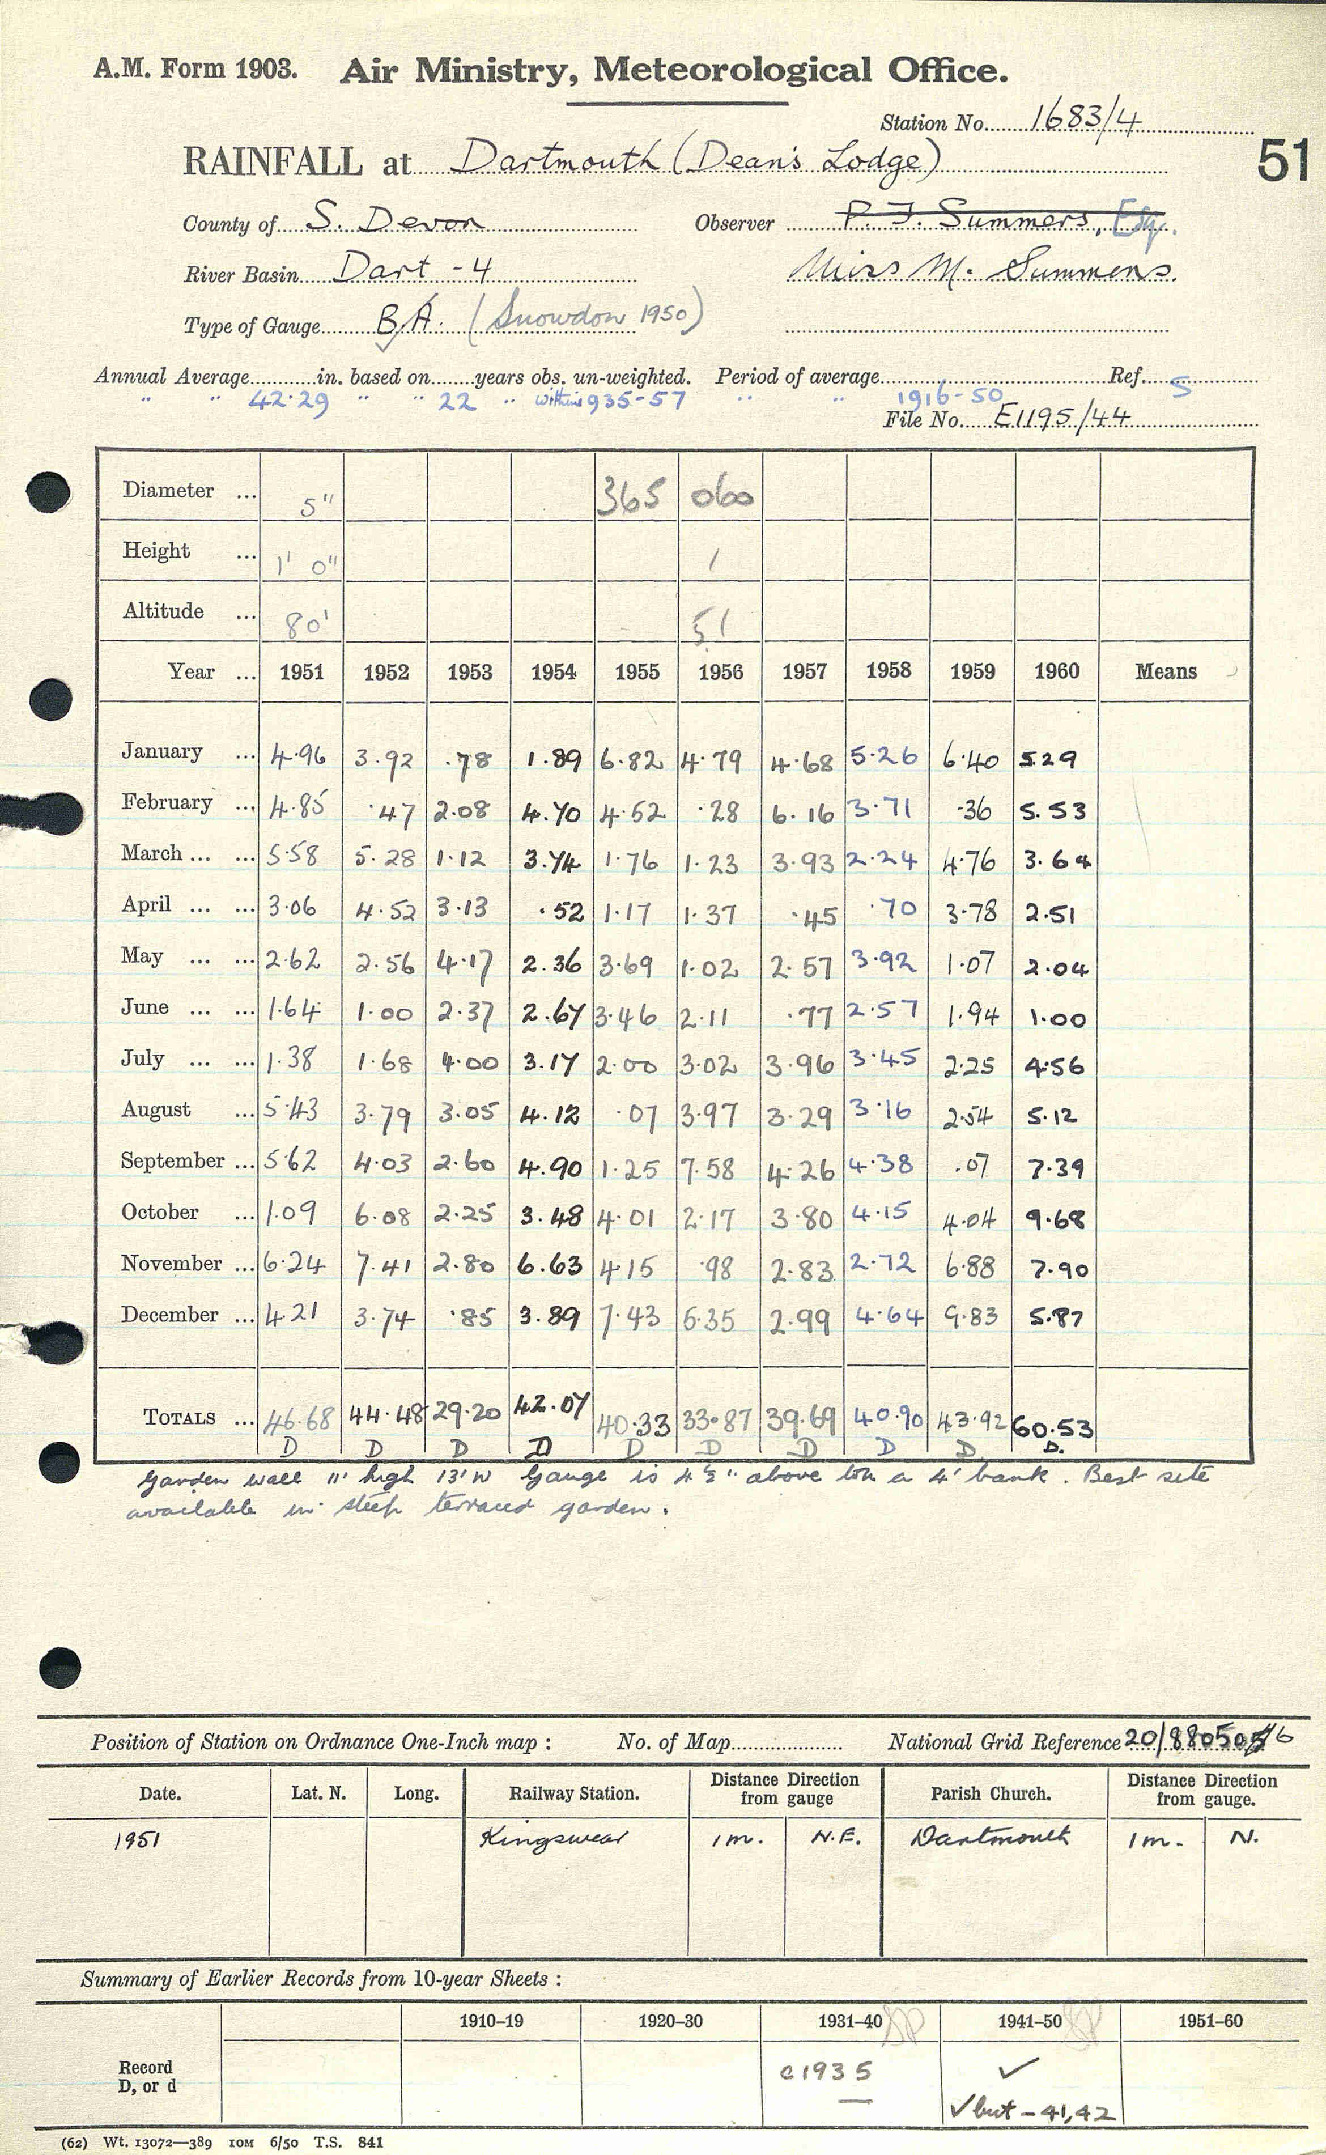 A.M. Form 1903. Air Ministry, Meteorological Office.
Station No. 1683/4
RAINFALL at Dartmouth (Dean's Lodge)
51
County of S. Devon Observer P. J. Summers, Esq.
River Basin Dart - 4 Miss M. Summers.
Type of Gauge B/A. (Snowdon 1950)
Annual Average in. based on years obs. un-weighted. Period of average Ref. S
" " 42.29 " " 22 " within 935-57 " " 1916-50
File No. E1195/44
Diameter ... 5" 365 060
Height ... 1' 0" 1
Altitude ... 80' 51
Year ... 1951 1952 1953 1954 1955 1956 1957 1958 1959 1960 Means
January ... 4.96 3.92 .78 1.89 6.82 4.79 4.68 5.26 6.40 5.29
February ... 4.85 .47 2.08 4.70 4.52 .28 6.16 3.71 .36 5.53
March ... ... 5.58 5.28 1.12 3.74 1.76 1.23 3.93 2.24 4.76 3.64
April ... ... 3.06 4.52 3.13 .52 1.17 1.37 .45 .70 3.78 2.51
May ... ... 2.62 2.56 4.17 2.36 3.69 1.02 2.57 3.92 1.07 2.04
June ... ... 1.64 1.00 2.37 2.67 3.46 2.11 .77 2.57 1.94 1.00
July ... ... 1.38 1.68 4.00 3.17 2.00 3.02 3.96 3.45 2.25 4.56
August ... 5.43 3.79 3.05 4.12 .07 3.97 3.29 3.16 2.54 5.12
September ... 5.62 4.03 2.60 4.90 1.25 7.58 4.26 4.38 .07 7.39
October ... 1.09 6.08 2.25 3.48 4.01 2.17 3.80 4.15 4.04 9.68
November ... 6.24 7.41 2.80 6.63 4.15 .98 2.83 2.72 6.88 7.90
December ... 4.21 3.74 .85 3.89 7.43 5.35 2.99 4.64 9.83 5.87
TOTALS ... 46.68 44.48 29.20 42.07 40.33 33.87 39.69 40.90 43.92 60.53
D D D D D D D D D D.
Garden wall 11' high 13' W Gauge is 4½" above on a 4' bank. Best site
available in steep terraced garden.
Position of Station on Ordnance One-Inch map : No. of Map National Grid Reference 20/880505
Date. Lat. N. Long. Railway Station. Distance Direction from gauge Parish Church. Distance Direction from gauge.
1951 Kingswear 1m. N.E. Dartmouth 1m. N.
Summary of Earlier Records from 10-year Sheets :
1910-19 1920-30 1931-40 1941-50 1951-60
Record c1935 ✓
D, or d — ✓ but - 41,42
(62) Wt. 13072—389 10M 6/50 T.S. 841